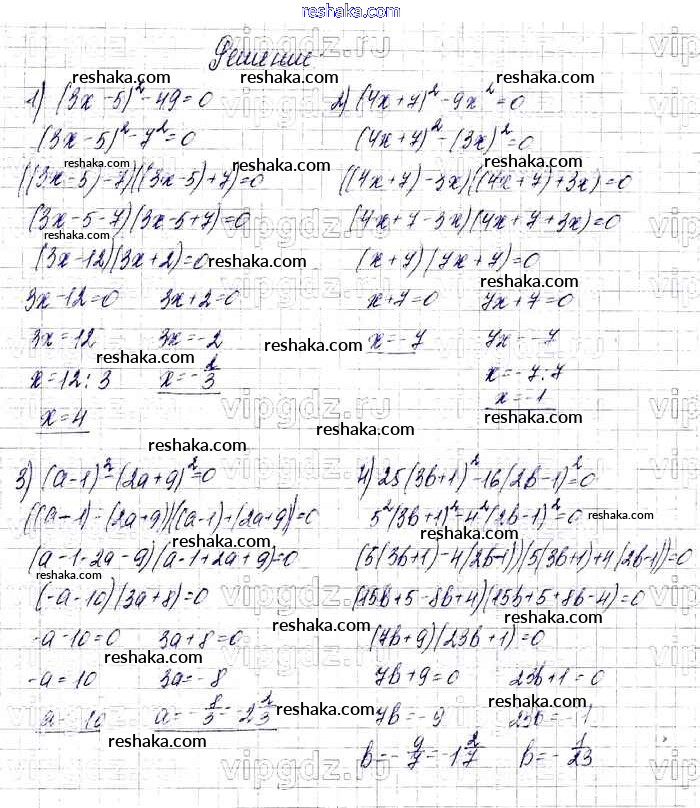 reshaka.com
Решение
1) (3x-5)²-49=0
(3x-5)²-7²=0
((3x-5)-7)((3x-5)+7)=0
(3x-5-7)(3x-5+7)=0
(3x-12)(3x+2)=0
3x-12=0 3x+2=0
3x=12 3x=-2
x=12:3 x=-2/3
x=4
2) (4x+7)²-9x²=0
(4x+7)²-(3x)²=0
((4x+7)-3x)((4x+7)+3x)=0
(4x+7-3x)(4x+7+3x)=0
(x+7)(7x+7)=0
x+7=0 7x+7=0
x=-7 7x=-7
x=-7:7
x=-1
3) (a-1)²-(2a+9)²=0
((a-1)-(2a+9))((a-1)+(2a+9))=0
(a-1-2a-9)(a-1+2a+9)=0
(-a-10)(3a+8)=0
-a-10=0 3a+8=0
-a=10 3a=-8
a=-10 a=-8/3=-2 2/3
4) 25(3b+1)²-16(2b-1)²=0
5²(3b+1)²-4²(2b-1)²=0
(5(3b+1)-4(2b-1))(5(3b+1)+4(2b-1))=0
(15b+5-8b+4)(15b+5+8b-4)=0
(7b+9)(23b+1)=0
7b+9=0 23b+1=0
7b=-9 23b=-1
b=-9/7=-1 2/7 b=-1/23